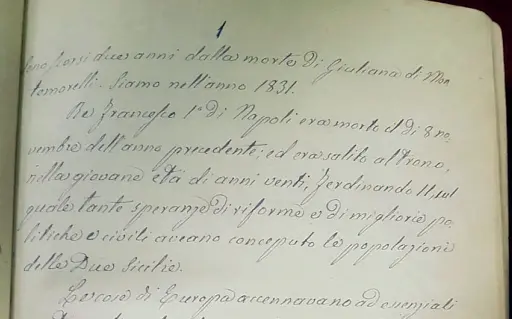 1
sono scorsi due anni dalla morte di Giuliana di Mon
temorelli. Siamo nell'anno 1831.
Re Francesco 1º di Napoli era morto il dì 8 no,
vembre dell'anno precedente; ed era salito al trono,
nella giovane età di anni venti, Ferdinando II, sul
quale tante speranze di riforme e di migliorie po,
litiche e civili aveano conceputo le popolazioni
delle Due Sicilie.
Le cose di Europa accennavano ad essenziali